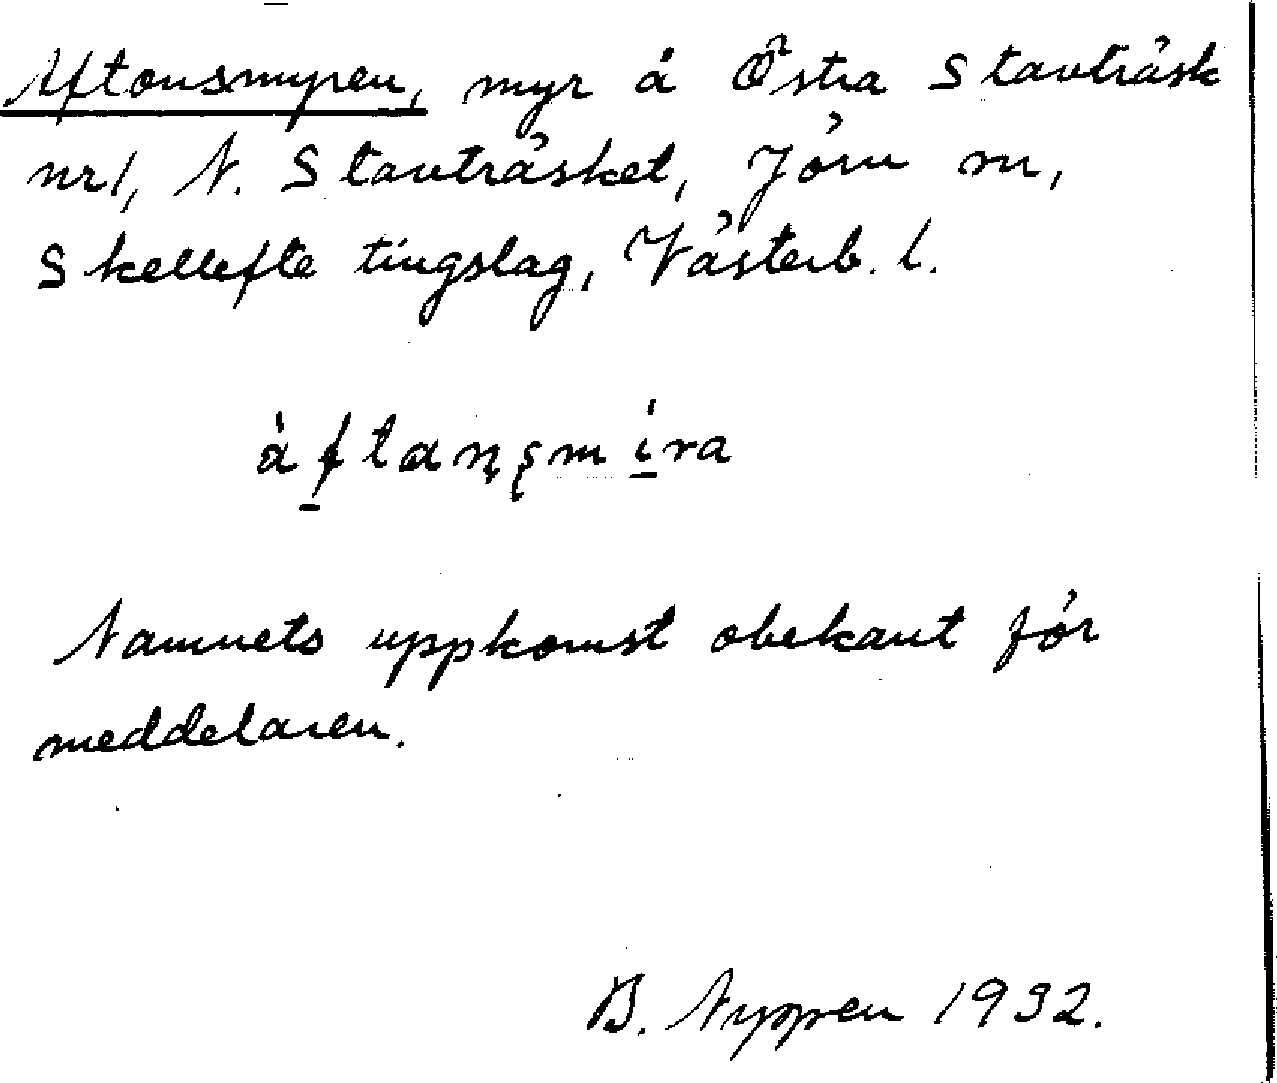 Aftonsmyren, myr å Östra Stavträsk
nr1, N. Stavträsket, Jörn sn,
Skellefte tingslag, Västerb. l.
àf̱tanşmí̱ra
Namnets uppkomst obekant för
meddelaren.
B. Nyppen 1932.